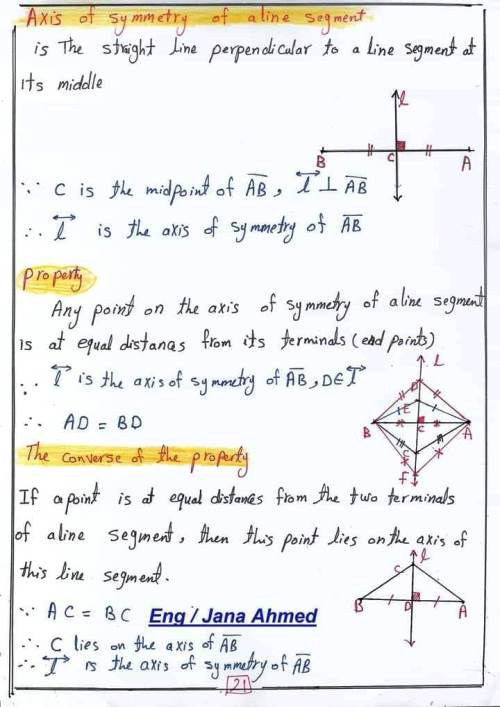 Axis of symmetry of a line segment
is The stright line perpendicular to a line segment at
its middle
l
B C A
∵ C is the midpoint of AB, l ⊥ AB
∴ l is the axis of symmetry of AB
property
Any point on the axis of symmetry of a line segment
is at equal distances from its terminals (end points)
∵ l is the axis of symmetry of AB, D∈l
∴ AD = BD
L
D
E
B C A
F
The converse of the property
If a point is at equal distances from the two terminals
of a line segment, then this point lies on the axis of
this line segment.
l
C
B D A
∵ AC = BC Eng / Jana Ahmed
∴ C lies on the axis of AB
∴ l is the axis of symmetry of AB
21